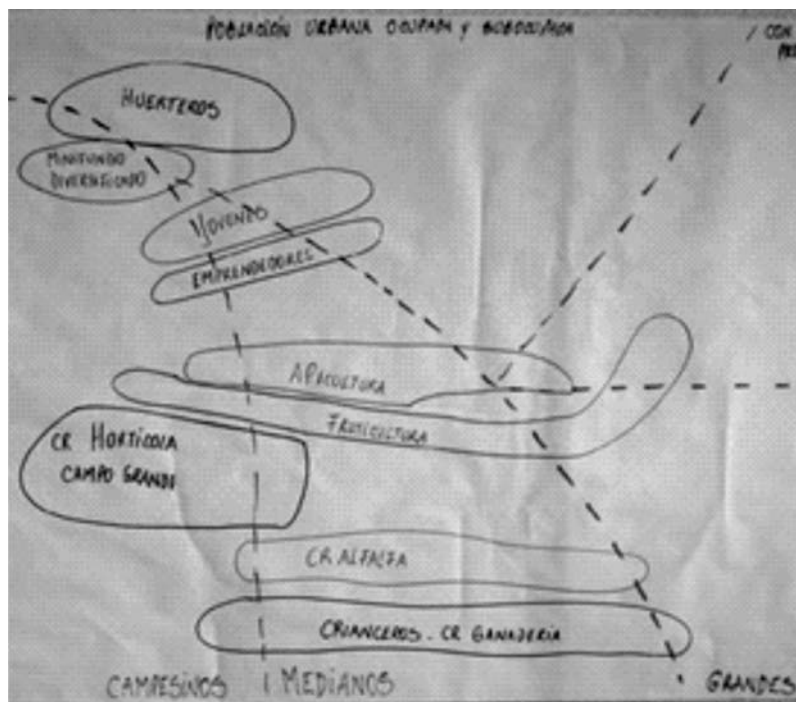 POBLACIÓN URBANA OCUPADA Y SUBOCUPADA
CON
HUERTEROS
MINIFUNDIO
DIVERSIFICADO
JOVENES
EMPRENDEDORES
APICULTURA
FRUTICULTURA
CR HORTICOLA
CAMPO GRANDE
CR ALFALFA
CRIANCEROS - CR GANADERIA
CAMPESINOS
MEDIANOS
GRANDES